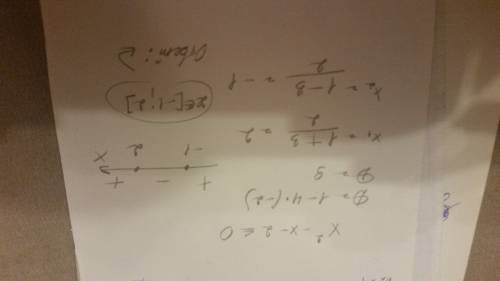 x² - x - 2 ≤ 0
D = 1 - 4 · (-2)
D = 9
x₁ = 1 + 3 / 2 = 2
x₂ = 1 - 3 / 2 = -1
+ - +
-1 2 x
x ∈ [-1; 2]
Ответ: 2